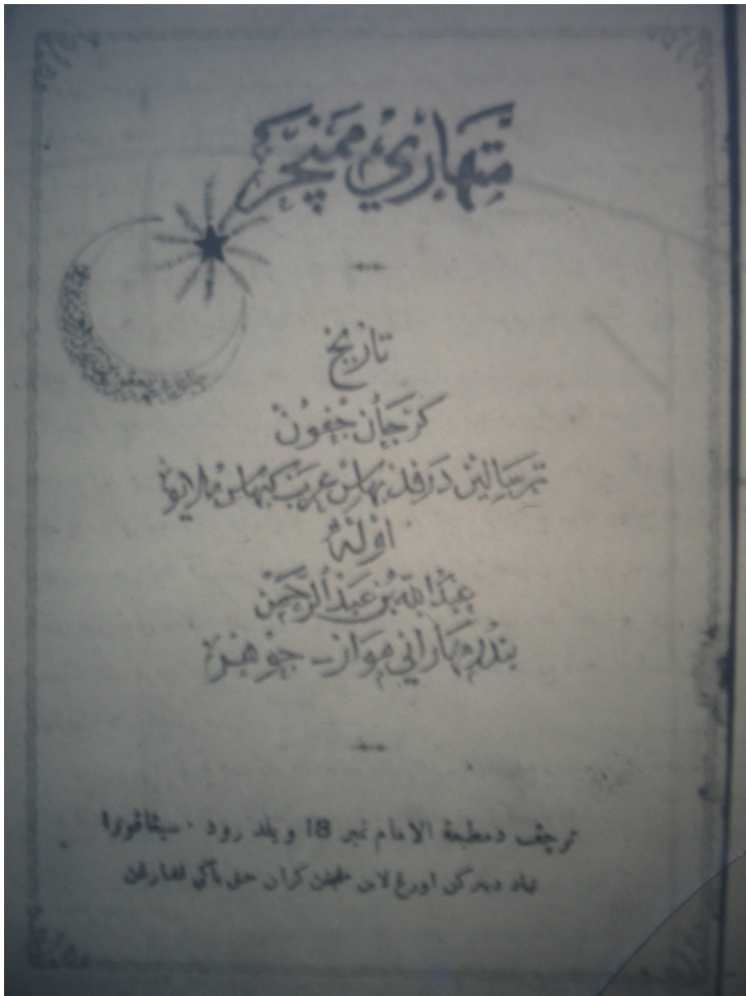 متهاري ممنچر
تاريخ
كرجأن جڤون
ترسالين درڤد بهاس عرب كبهاس ملايو
اوله
عبدالله بن عبدالرحمن
بندر مهاراني موار - جوهر
ترچيڤ دمطبعة الامام نمبر 18 ويلد رود . سيڠاڤورا
تياد دبنركن اورڠ لاين كران حق باݢي